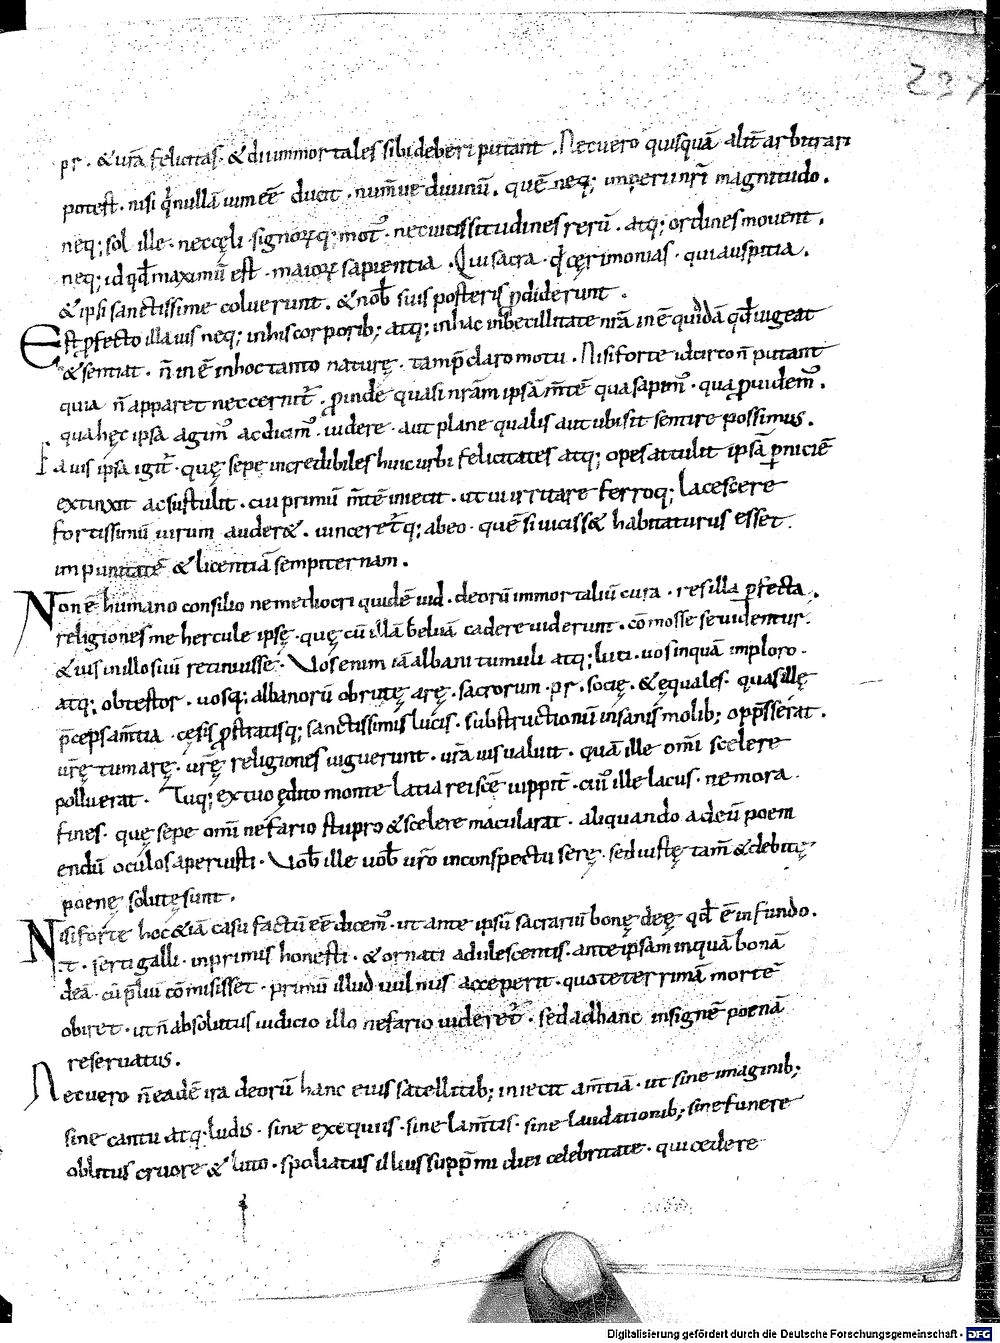 237
pr· &ur̄a felicitas· & di immortales sibi deberi putant. Nec uero quisquā alit̄ arbitrari
potest· nisi q̄ nullā uim eē ducit· num̄ue diuinū. quē neq; imperii nr̄i magnitudo.
neq; sol ille· nec cęli signorꝝq; mot᷒· nec uicissitudines rerū· atq; ordines mouent.
neq; id qd̄ maximū est· maiorꝝ sapientia. Qui sacra· q̄ cęrimonias· qui auspitia.
& ipsi sanctissime coluerunt. & nob̄ suis posteris ꝓdiderunt.
Est ꝓfecto illa uis neq; in his corporib; atq; in hac inbecillitate nr̄a inē quiddā qd̄ uigeat
& sentiat· n̄ inē in hoc tanto naturę· tam p̄claro motu. Nisi forte idcirco n̄ putant
quia n̄ apparet nec cernit᷒. ꝓinde quasi nr̄am ipsā m̄tē qua sapim᷒· qua ꝓuidem᷒.
qua hęc ipsa agim᷒ ac dicim᷒. uidere· aut plane qualis aut ubi sit sentire possimus.
Ea uis ipsa igit᷒· quę sepe incredibiles huic urbi felicitates atq; opes attulit ipsā ꝑniciē
extinxit ac sustulit· cui primū m̄tē iniecit· ut ui irritare ferroq; lacescere
fortissimū uirum auder&. uinceret᷒q; abeo· quē si uiciss& habitaturus esset.
impunitatē & licentiā sempiternam.
Non ē humano consilio ne mediocri quidē iud· deorū immortaliū cura· res illa ꝑfecta.
religiones me hercule ipsę· quę cū illā beluā cadere uiderunt· com̄osse se uidentur.
& ius in illo siuū retinuisse. Vos enim iā albani tumuli atq; luci· uos inquā imploro·
atq; obtestor· uosq; albanorū obrutę arę· sacrorum· pr· socię· & equales· quas ille
p̄ceps am̄tia cęsis ꝓstratisq; sanctissimis lucis· substructionū insanis molib; opp̄sserat.
ur̄ę tum arę· ur̄ę religiones uiguerunt· ur̄a uis ualuit· quā ille om̄i scelere
polluerat. Tuq; ex tuo ędito monte latiareiscē iuppit̄· cuī ille lacus· nemora·
fines· quę sepe om̄i nefario stupro & scelere macularat· aliquando adeū poeni
endū oculos aperuisti. Vob̄ ille uob̄ ur̄o in conspectu serę· sed iustę tam̄ & debitę
poenę solutę sunt.
Nisi forte hoc &iā casu factū eē dicem᷒· ut ante ipsū sacrariū bonę deę qd̄ ē in fundo.
.t· serti galli· inprimis honesti· & ornati adulescentis· ante ipsam inquā bonā
deā· cū p̄liū com̄isisset· primū illud uulnus acceperit· quo teterrimā mortē
obiret· ut n̄ absolutus iudicio illo nefario uideret᷒· sed ad hanc insignē poenā
reseruatus.
Nec uero n̄ eadē ira deorū hanc eius satellitib; iniecit am̄tiā· ut sine imaginib;
sine cantu atq· ludis· sine exequiis· sine lam̄tis· sine laudationib; sine funere
oblitus cruore & luto· spoliatus illius supp̄mi diei celebritate· qui cedere
Digitalisierung gefördert durch die Deutsche Forschungsgemeinschaft - DFG